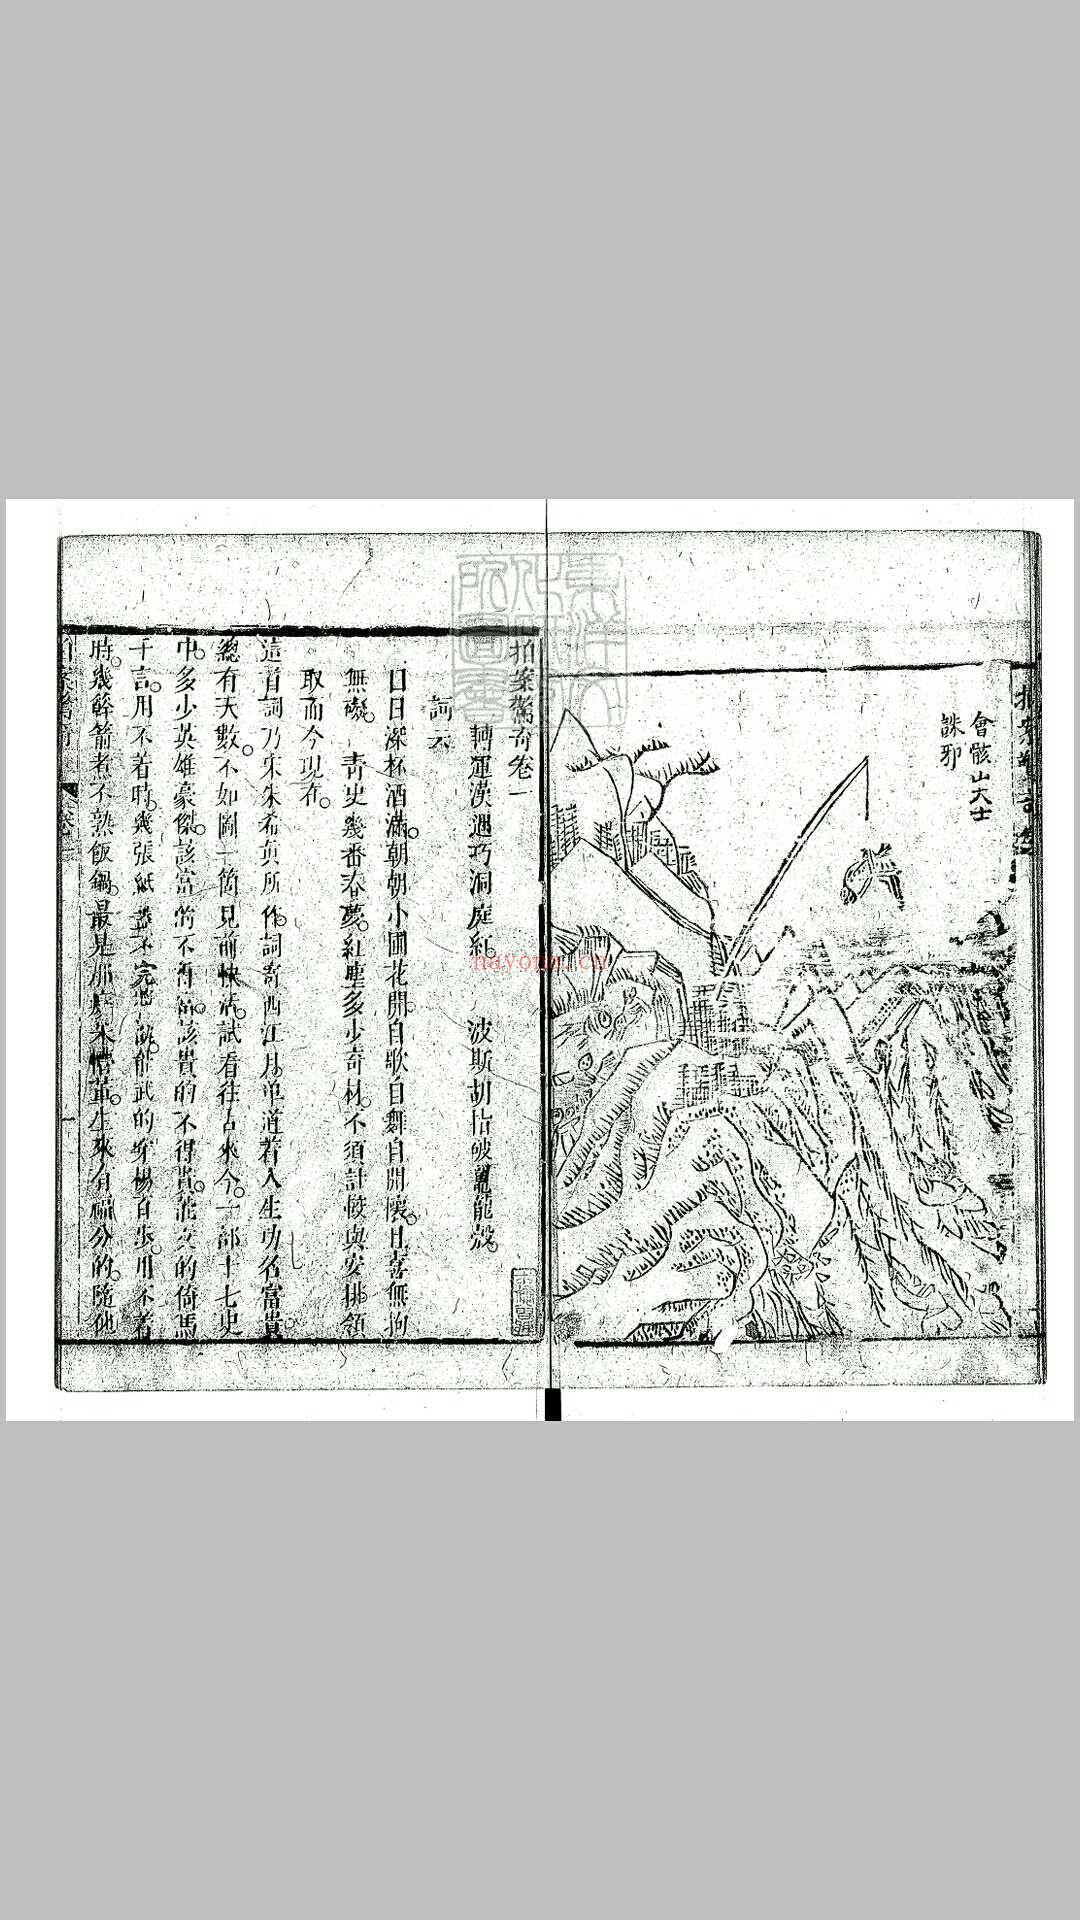 會骸山大士
誅邪
拍案驚奇卷一
轉運漢遇巧洞庭紅。 波斯胡指破鼉龍殼。
詞云
日日深杯酒滿。朝朝小圃花開自歌自舞自開懷。且喜無拘
無礙。 青史幾番春夢。紅塵多少奇材。不須計較與安排領
取而今現在。
這首詞乃宋朱希真所作。詞寄西江月。單道着人生功名富貴。
總有天數。不如圖一箇見前快活。試看往古來今。一部十七史
中。多少英雄豪傑。該富的不得富。該貴的不得貴。能文的倚馬
千言。用不着時。幾張紙蓋不完醬瓿。能武的穿楊百步。用不着
時。幾簳箭煮不熟飯鍋。最是那癡呆懵董。生來有福分的。隨他
拍案驚奇
卷一
一
nayona.cn